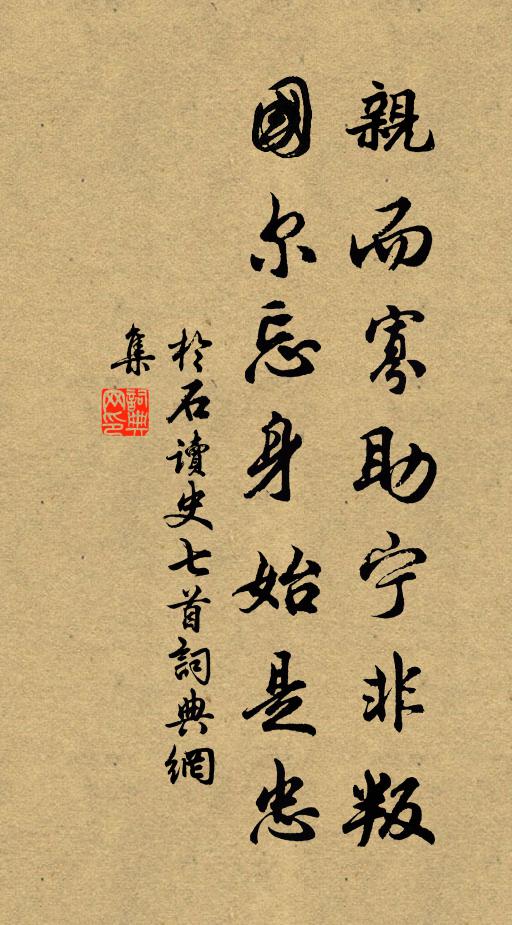 親而寡助宁非叛
國尔忘身始是忠
於石讀史七首詞典網
集
詞典
网印